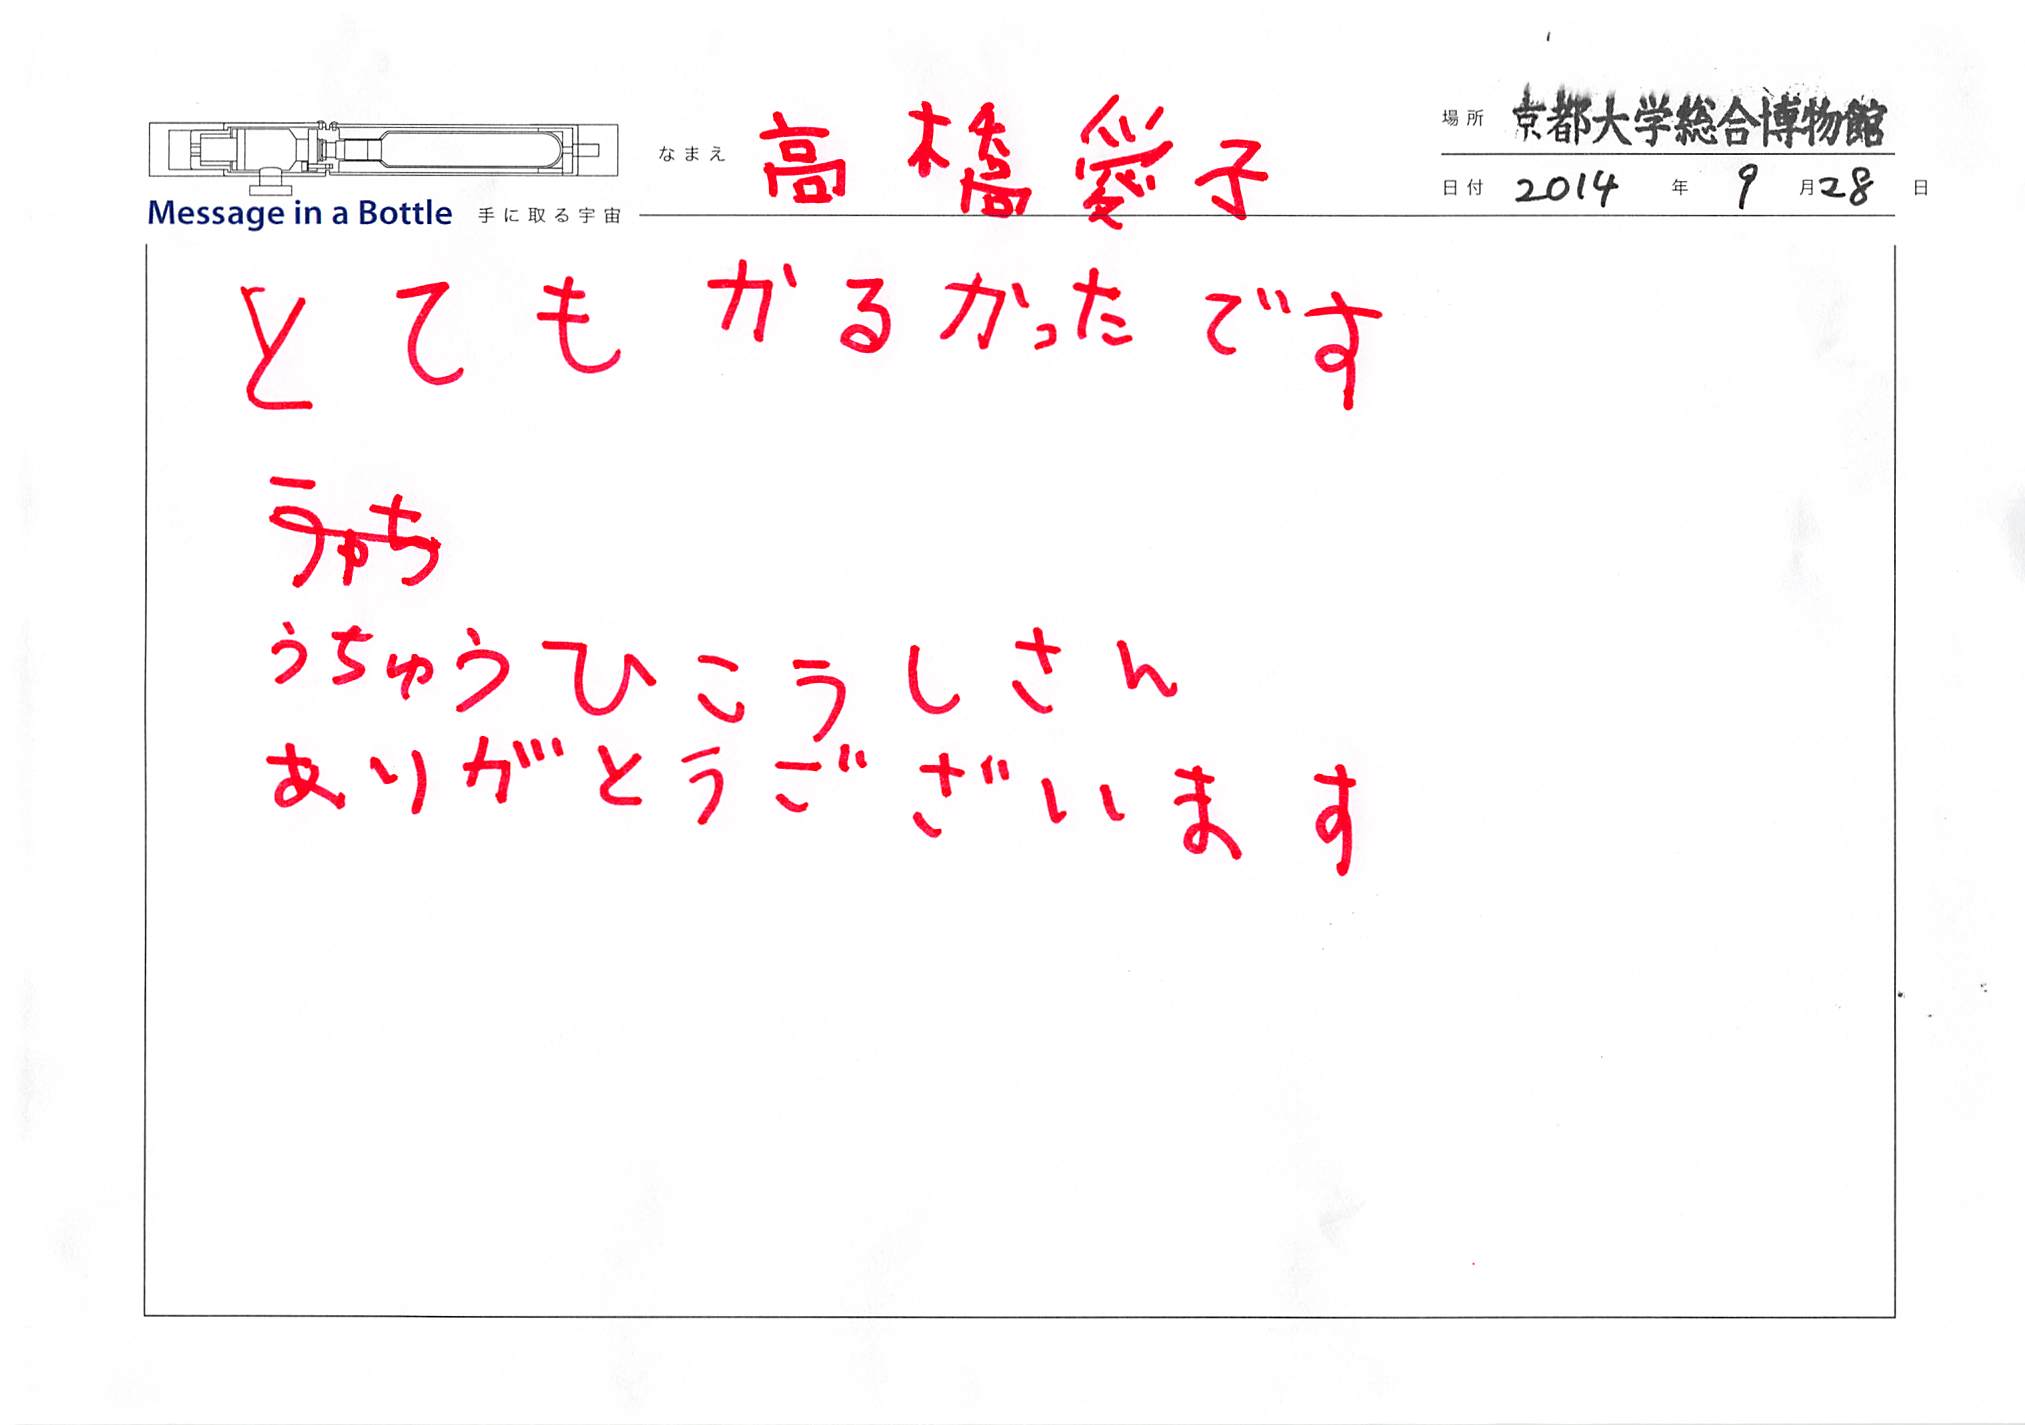 なまえ 高橋愛子
場所 京都大学総合博物館
日付 2014 年 9 月 28 日
Message in a Bottle 手に取る宇宙
とてもかるかったです
うゅち
うちゅうひこうしさん
ありがとうございます